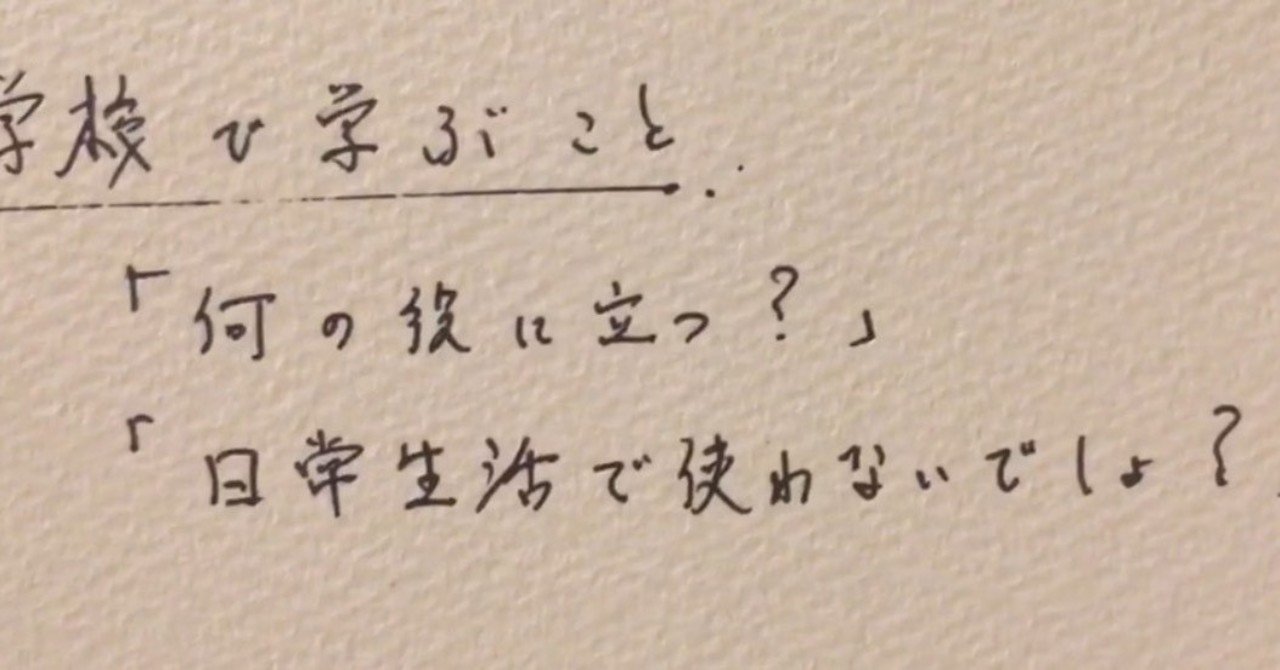 学校で学ぶこと.
「何の役に立つ？」
「日常生活で使わないでしょ？